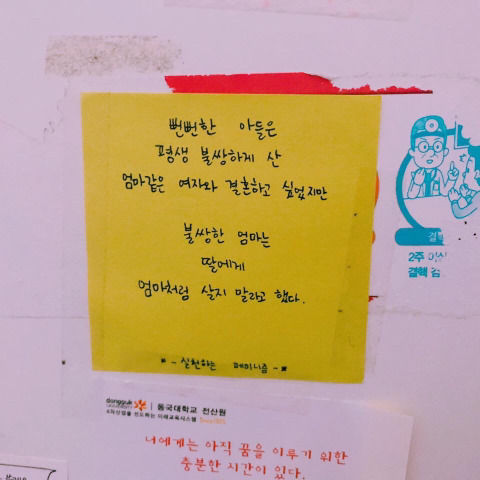 뻔뻔한 아들은
평생 불쌍하게 산
엄마같은 여자와 결혼하고 싶었지만
불쌍한 엄마는
딸에게
엄마처럼 살지 말라고 했다.
- 실천하는 페미니즘 -
결핵
2주 이상
결핵 검
dongguk UNIVERSITY 동국대학교 전산원
4차산업을 선도하는 미래교육시스템 Since1975
너에게는 아직 꿈을 이루기 위한
충분한 시간이 있다.